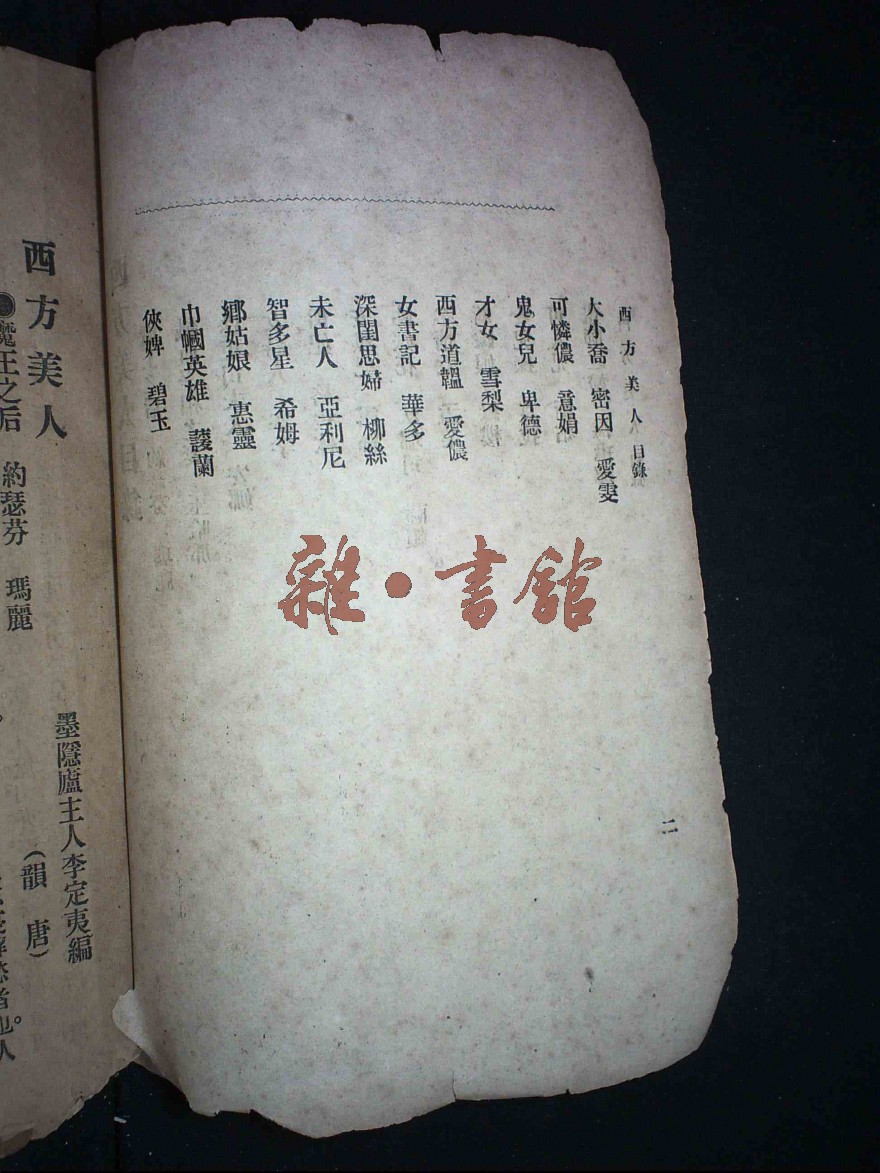 西方美人 目錄
大小喬 密因 愛雯
可憐儂 意娟
鬼女兒 卑德
才女 雪梨
西方道韞 愛儂
女書記 華多
深閨思婦 柳絲
未亡人 亞利尼
智多星 希姆
鄉姑娘 惠靈
巾幗英雄 護蘭
俠婢 碧玉
二
雜·書館
墨隱廬主人李定夷編
西方美人
(韻唐)
●魔王之后 約瑟芬 瑪麗